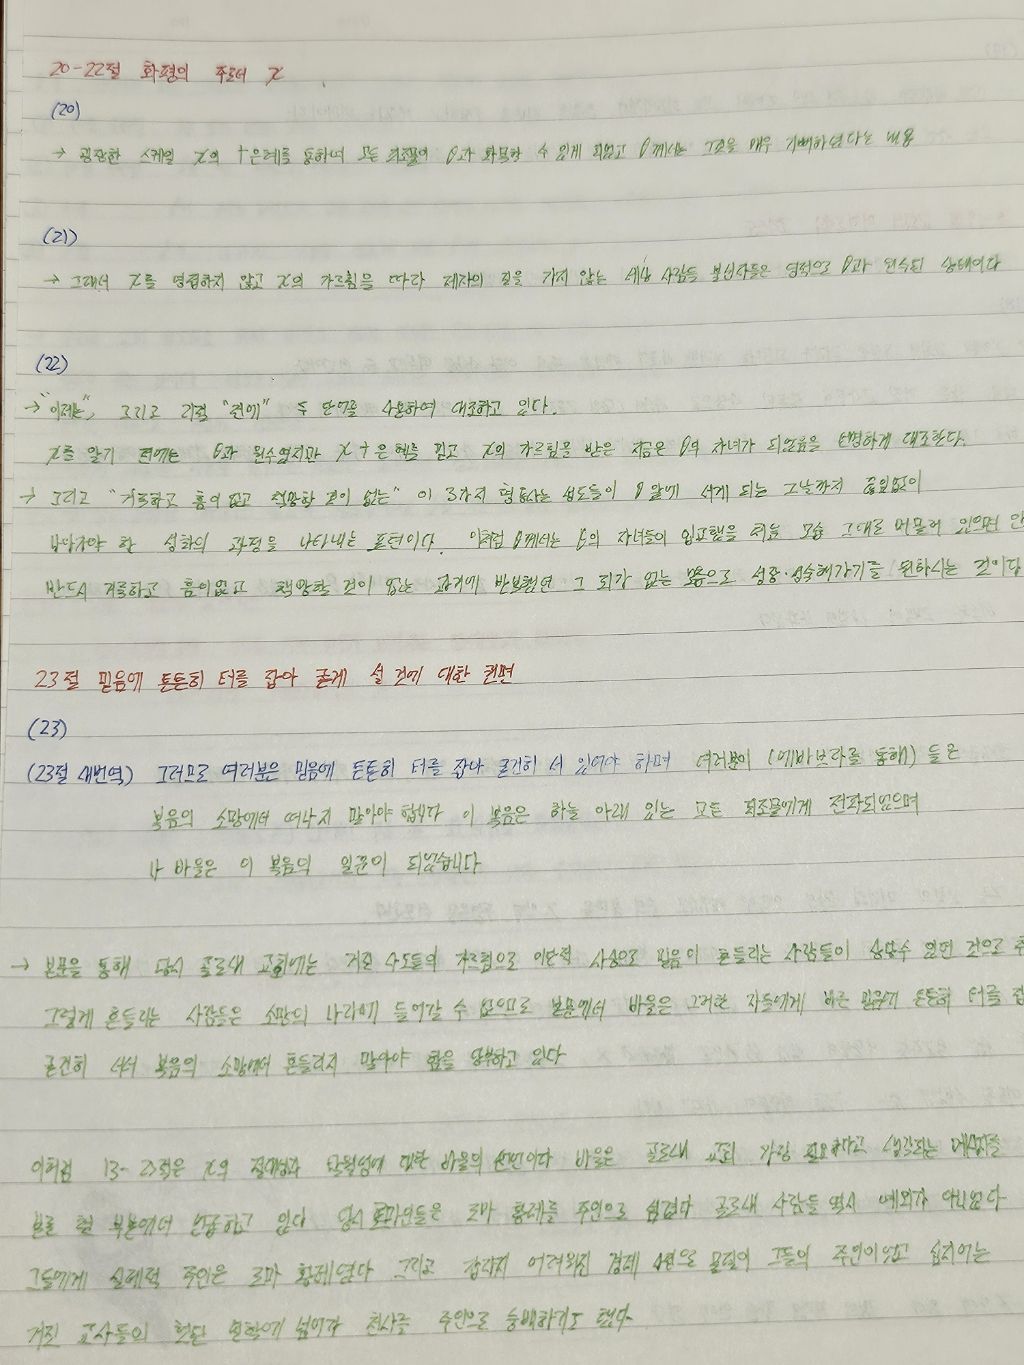 20-22절 화평의 주로서 X
(20)
→ 굉장한 스케일 X의 †은혜를 통하여 모든 피조물이 θ과 화목할 수 있게 되었고 θ께서는 그것을 매우 기뻐하셨다는 내용
(21)
→ 그래서 X를 영접하지 않고 X의 가르침을 따라 제자의 길을 가지 않는 세상 사람들 불신자들은 영적으로 θ과 원수된 상태이다
(22)
→ "이제는", 그리고 "전에" 두 단어를 사용하여 대조하고 있다.
X를 알기 전에는 θ과 원수였지만 X †은혜를 믿고 X의 가르침을 받은 지금은 θ의 자녀가 되었음을 분명하게 대조한다.
→ 그리고 "거룩하고 흠이 없고 책망할 것이 없는" 이 3가지 형용사는 성도들이 θ 앞에 서게 되는 그날까지 끊임없이
나아가야 할 성화의 과정을 나타내는 표현이다. 이처럼 θ께서는 θ의 자녀들이 처음 모습 그대로 머물러 있으면 안
반드시 거룩하고 흠이없고 책망할 것이 없는 과거에 반복했던 그 죄가 없는 모습으로 성장·성숙해가기를 원하시는 것이다
23절 믿음에 튼튼히 터를 잡아 굳게 설 것에 대한 권면
(23)
(23절 새번역) 그러므로 여러분은 믿음에 튼튼히 터를 잡아 굳건히 서 있어야 하며 여러분이 (에바브라를 통해) 들은
복음의 소망에서 떠나지 말아야 합니다 이 복음은 하늘 아래 있는 모든 피조물에게 전파되었으며
나 바울은 이 복음의 일꾼이 되었습니다
→ 본문을 통해 당시 골로새 교회에는 거짓 사도들의 가르침으로 이단적 사상으로 믿음이 흔들리는 사람들이 상당수 있던 것으로 추
그렇게 흔들리는 사람들은 소망의 나라에 들어갈 수 없으므로 본문에서 바울은 그러한 자들에게 바른 믿음에 튼튼히 터를 잡
굳건히 서서 복음의 소망에서 흔들리지 말아야 함을 당부하고 있다
이처럼 13-23절은 X의 절대성과 탁월성에 대한 바울의 선언이다 바울은 골로새 교회 가장 필요하다고 생각되는 메세지를
본문 첫 부분에서 언급하고 있다 당시 로마인들은 로마 황제를 주인으로 섬겼다 골로새 사람들 역시 예외가 아니었다
그들에게 실제적 주인은 로마 황제였다 그리고 갑자기 어려워진 경제 물질이 그들의 주인이었고 심지어는
거짓 교사들의 헛된 철학에 넘어가 천사를 주인으로 숭배하기도 했다.